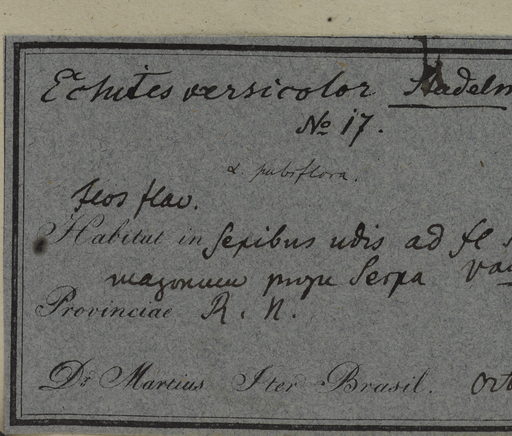 Echites versicolor Stadelm
No 17.
α. pubiflora.
flos flav.
Habitat in sepibus udis ad fl
mazonum prope Serpa
Provinciae R. N.
Dr. Martius Iter Brasil. Oct